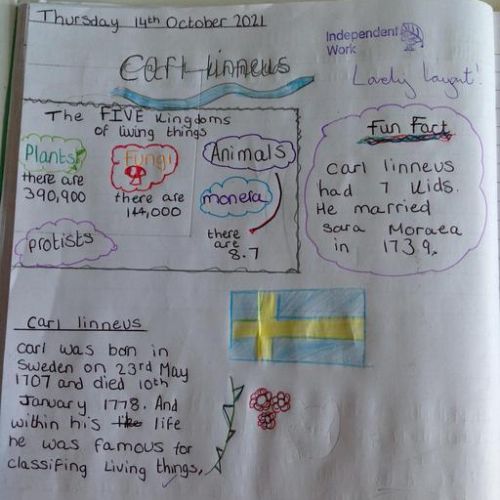 Thursday 14th October 2021
Independent
Work
Carl linneus
The FIVE Kingdoms
of living things
Plants
there are
390,900
Fungi
there are
144,000
Animals
monera
there
are
8.7
protists
Fun Fact
carl linneus
had 7 kids.
He married
sara Moraea
in 1739.
Carl linneus
carl was born in
Sweden on 23rd May
1707 and died 10th
January 1778. And
within his life
he was famous for
classifing Living things,